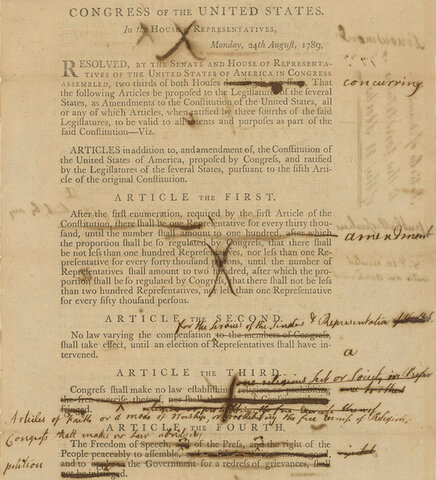 CONGRESS OF THE UNITED STATES.
In the HOUSE of REPRESENTATIVES,
Monday, 24th August, 1789,
RESOLVED, BY THE SENATE AND HOUSE OF REPRESENTA-
TIVES OF THE UNITED STATES OF AMERICA IN CONGRESS
ASSEMBLED, two thirds of both Houses That concurring
the following Articles be proposed to the Legislatures of the several
States, as Amendments to the Constitution of the United States, all
or any of which Articles, when ratified by three fourths of the said
Legislatures, to be valid to all intents and purposes as part of the
said Constitution—Viz.
ARTICLES in addition to, and amendment of, the Constitution of
the United States of America, proposed by Congress, and ratified
by the Legislatures of the several States, pursuant to the fifth Article
of the original Constitution.
ARTICLE THE FIRST.
After the first enumeration, required by the first Article of the
Constitution, there shall be one Representative for every thirty thou-
sand, until the number shall amount to one hundred, after which amendment
the proportion shall be so regulated by Congress, that there shall
be not less than one hundred Representatives, nor less than one Re-
presentative for every forty thousand persons, until the number of
Representatives shall amount to two hundred, after which the pro-
portion shall be so regulated by Congress, that there shall not be less
than two hundred Representatives, nor less than one Representative
for every fifty thousand persons.
ARTICLE THE SECOND.
for the services of the Senators & Representatives
No law varying the compensation to the members of Congress,
shall take effect, until an election of Representatives shall have in-
tervened. a
ARTICLE THE THIRD.
one religious sect or society in
Congress shall make no law establishing religion
the free exercise thereof,
Articles of Faith or a mode of worship or prohibiting the free exercise of Religion,
ARTICLE THE FOURTH.
Congress shall make no law abridging
The Freedom of Speech, of the Press, and the right of the
People peaceably to assemble,
petition
and to the Government for a redress of grievances, shall